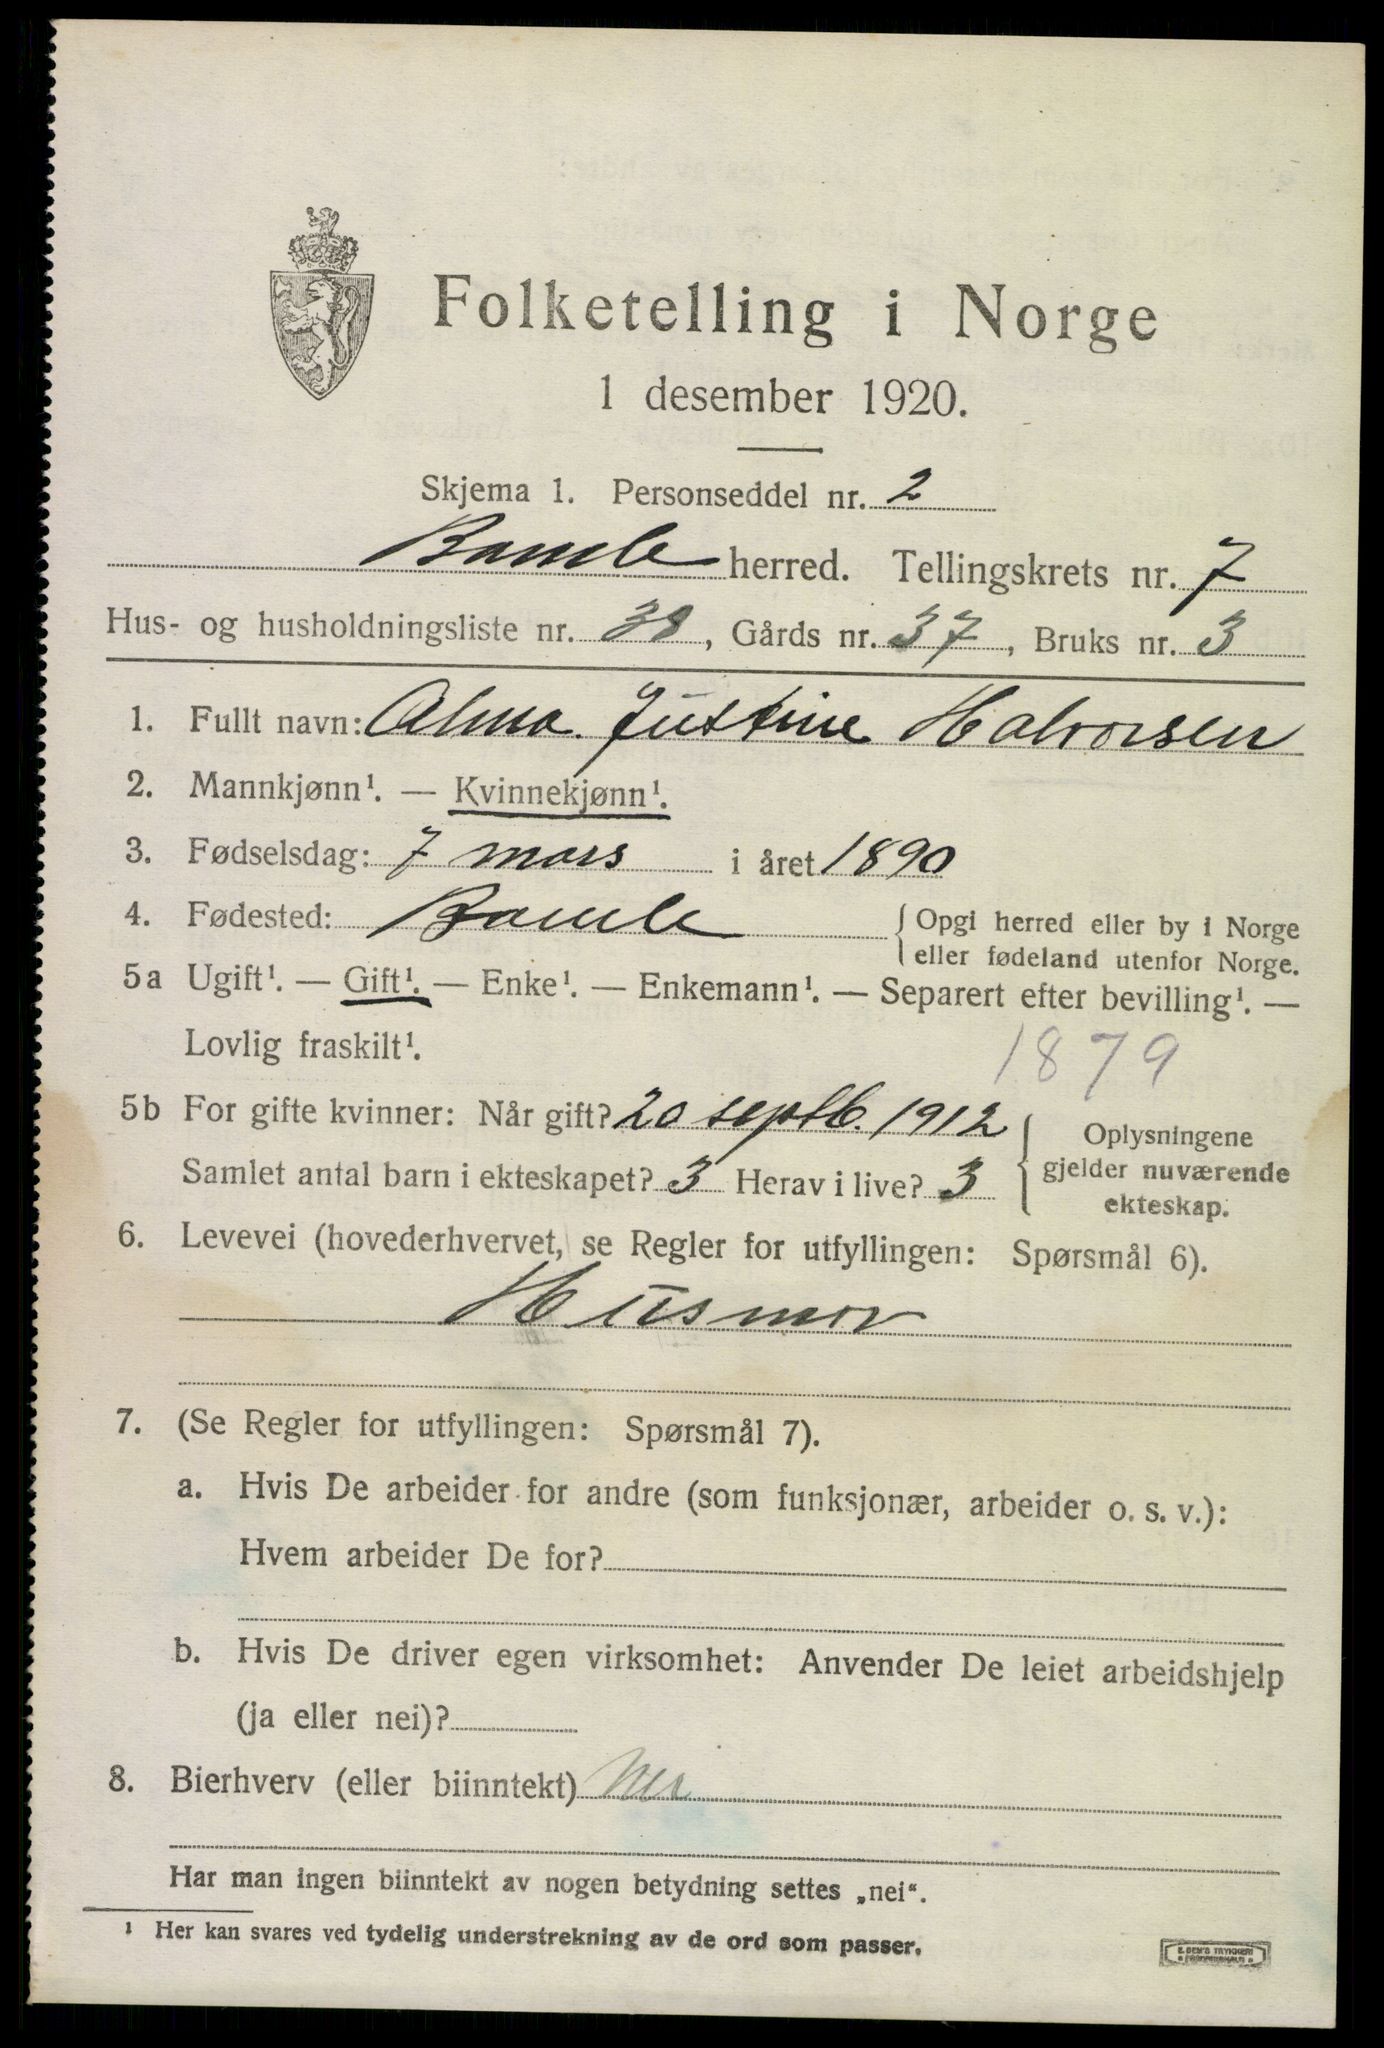 Folketelling i Norge
1 desember 1920.
Skjema 1. Personseddel nr. 2
Bamle herred. Tellingskrets nr. 7
Hus- og husholdningsliste nr. 38, Gårds nr. 37, Bruks nr. 3
1. Fullt navn: Alma Justine Halvorsen
2. Mannkjønn¹. — Kvinnekjønn¹.
3. Fødselsdag: 7 mars i året 1890
4. Fødested: Bamle { Opgi herred eller by i Norge
eller fødeland utenfor Norge.
5a Ugift¹. — Gift¹. — Enke¹. — Enkemann¹. — Separert efter bevilling¹. —
Lovlig fraskilt¹.
1879
5b For gifte kvinner: Når gift? 20 septb. 1912
Samlet antal barn i ekteskapet? 3 Herav i live? 3
{ Oplysningene
gjelder nuværende
ekteskap.
6. Levevei (hovederhvervet, se Regler for utfyllingen: Spørsmål 6).
Husmor
7. (Se Regler for utfyllingen: Spørsmål 7).
a. Hvis De arbeider for andre (som funksjonær, arbeider o. s. v.):
Hvem arbeider De for?
b. Hvis De driver egen virksomhet: Anvender De leiet arbeidshjelp
(ja eller nei)?
8. Bierhverv (eller biinntekt) Nei
Har man ingen biinntekt av nogen betydning settes „nei“.
¹ Her kan svares ved tydelig understrekning av de ord som passer.